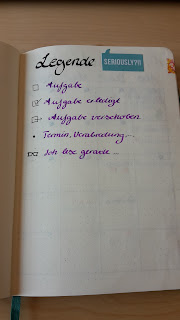 Legende SERIOUSLY?!!
Aufgabe
Aufgabe erledigt
Aufgabe verschoben
Termin, Verabredung...
Ich lese gerade ...